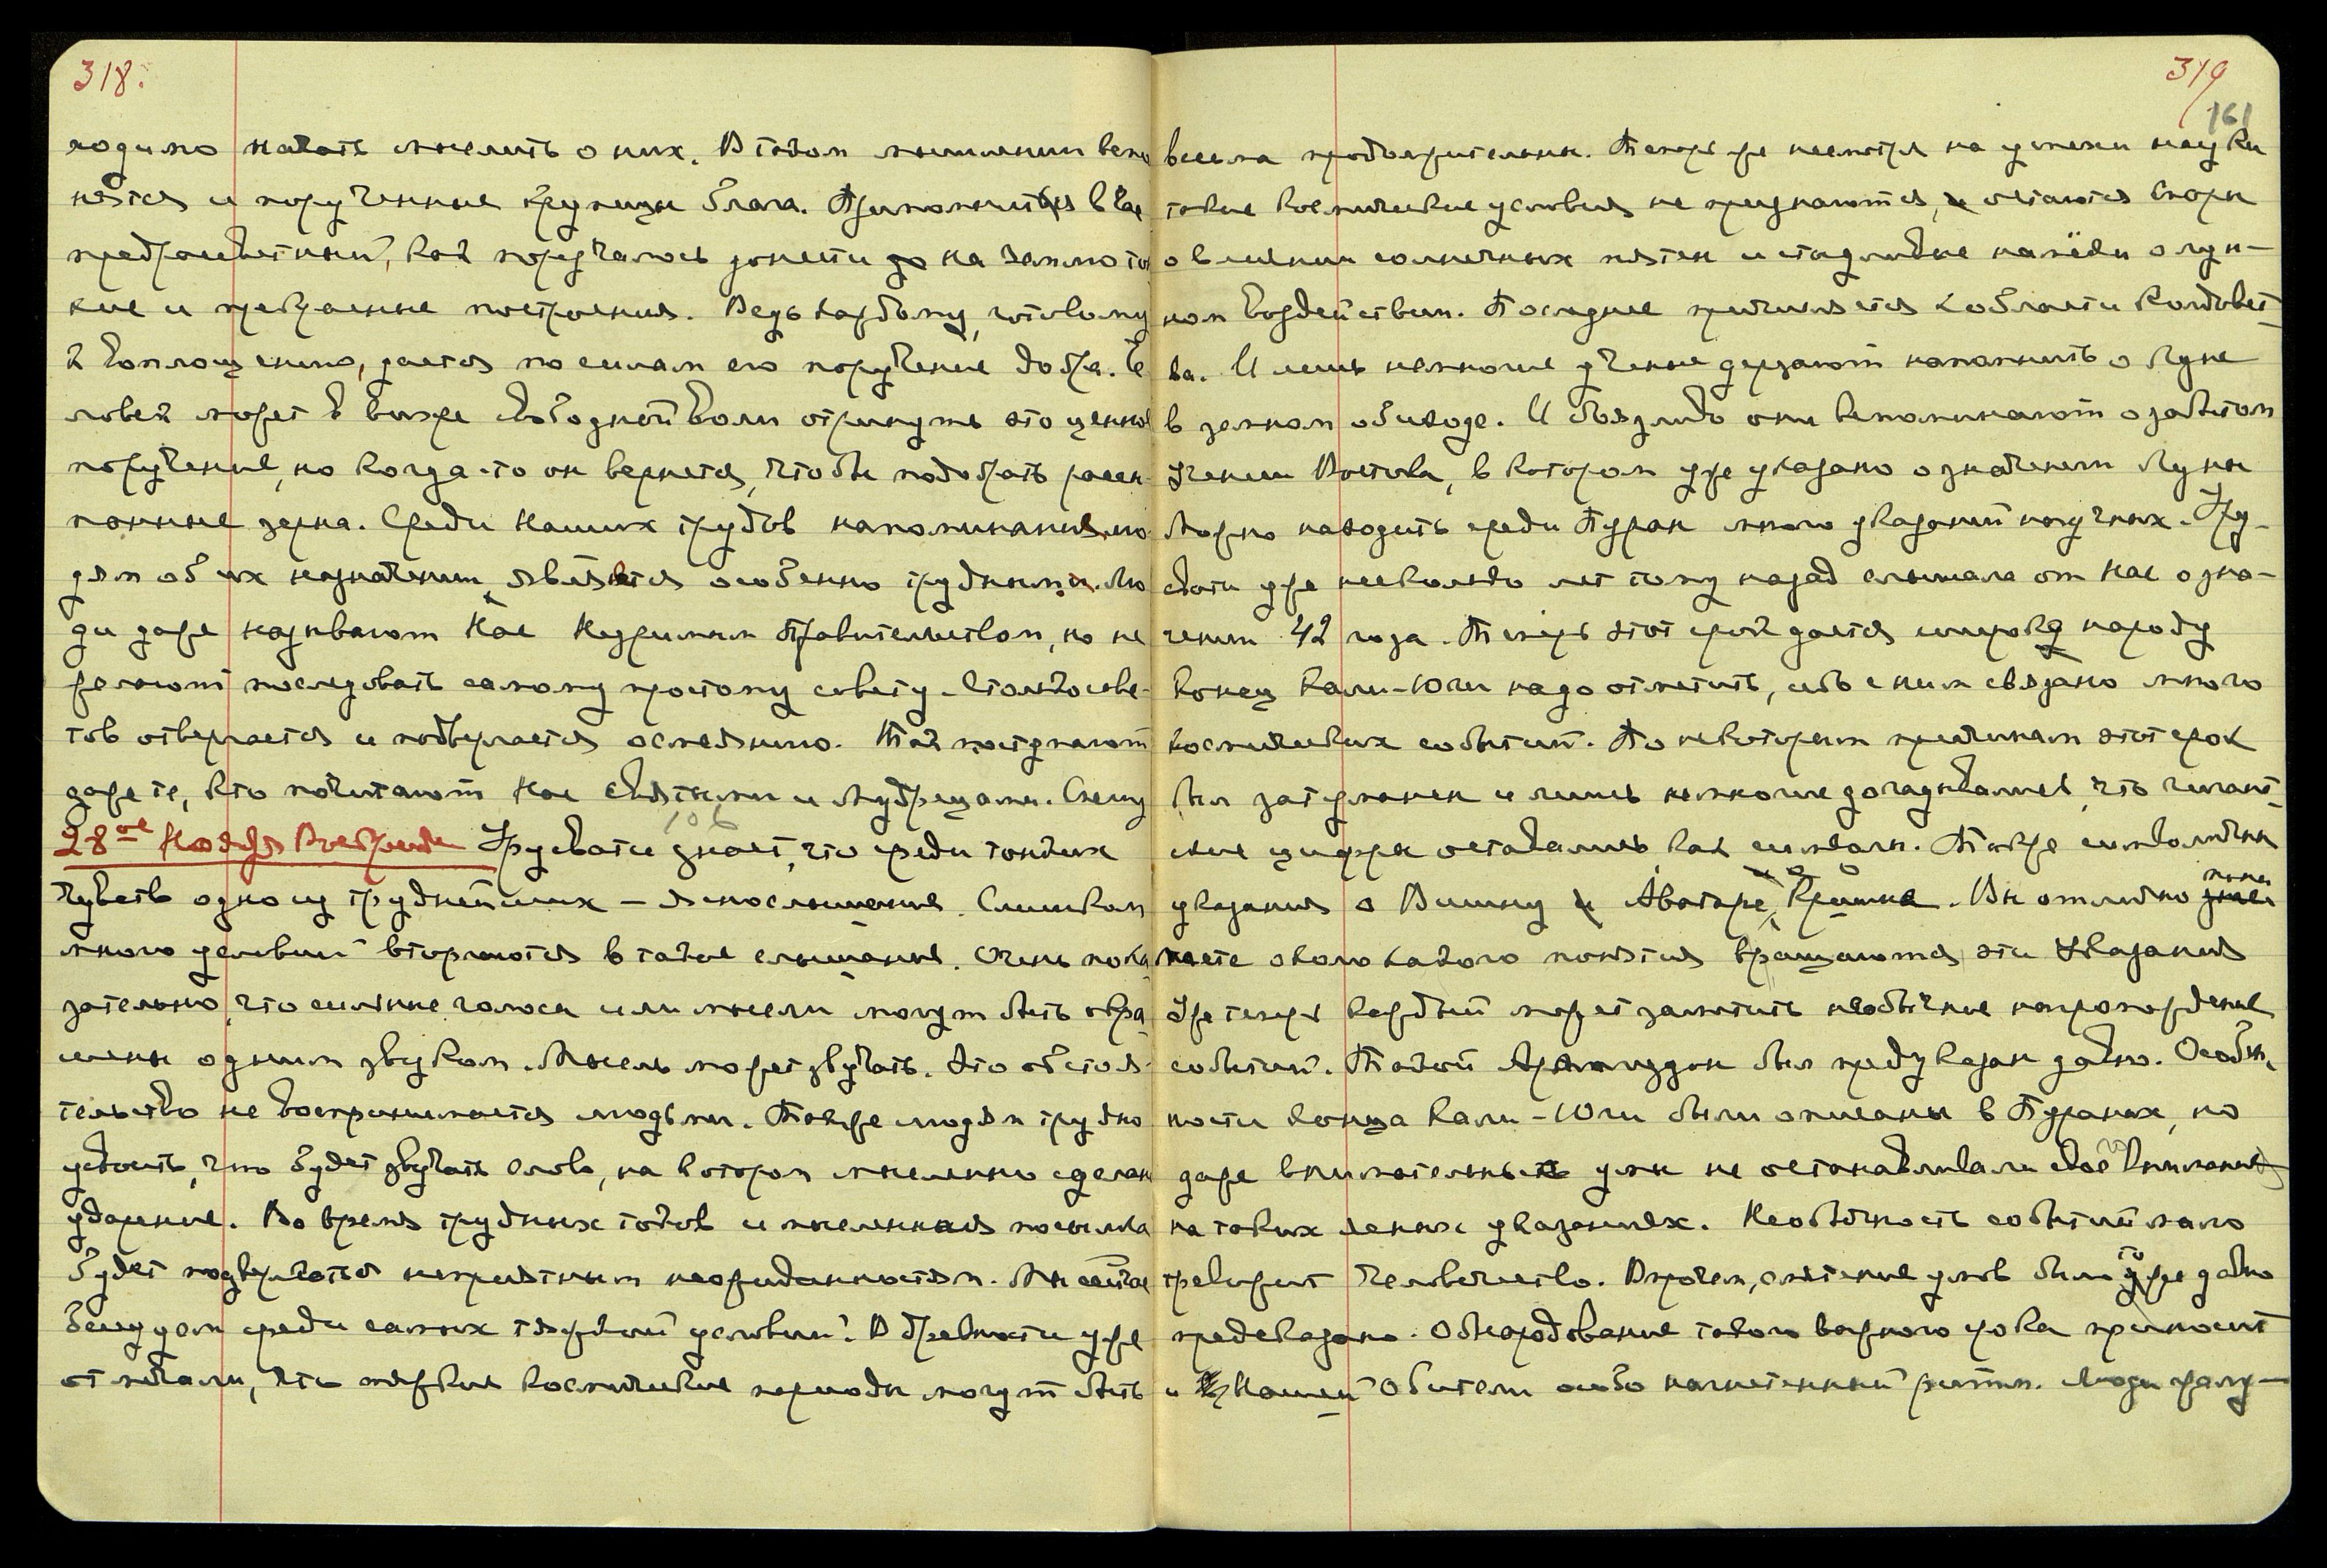 318.
ходимо начать мыслить о них. В таком мышлении вспом
нятся и порученные крупицы блага. Припомнится в час
предрассветный, как поручалось донести до на Землю то
кие и прекрасные построения. Ведь каждому, готовому
к воплощению, дается по силам его поручение добра. Че
ловек может в вихре свободной воли отринуть это ценное
поручение, но когда-то он вернется, чтобы подобрать рассы
панные зерна. Среди Наших трудов напоминания лю
дям об их назначении является особенно трудными. Лю
ди даже называют Нас Незримым Правительством, но не
желают последовать самому простому совету. Столько сове
тов отвергается и подвергается осмеянию. Так поступают
даже те, кто почитают Нас Святыми и Мудрецами. Спешу
106
28ое Ноября Воскресенье Урусвати знает, что среди тонких
чувств одно из труднейших — яснослышание. Слишком
много условий вторгаются в такое слышание. Очень пока
зательно, что сильные голоса или мысли могут быть окра
шены одним звуком. Мысль может звучать. Это обстоя
тельство не воспринимается людьми. Также людям трудно
усвоить, что будет звучать слово, на котором мысленно сделано
ударение. Во время трудных токов и мысленная посылка
будет подвергаться неприятным неожиданностям. Мы сейчас
беседуем среди самых тяжкий условий. В древности уже
отмечали, что тяжкие космические периоды могут быть
319
161
весьма продолжительны. Теперь же несмотря на успехи науки
такие космические условия не признаются, и остаются споры
о влиянии солнечных пятен и стыдливые намёки о лун-
ном воздействии. Последнее причисляется к области колдовст
ва. И лишь немногие ученые дерзают напомнить о Луне
в земном обиходе. И боязливо они вспоминают о забытом
Учении Востока, в котором уже указано о значении Луны
Можно находить среди Пуран много указаний научных. Уру-
свати уже несколько лет тому назад слышала от Нас о зна-
чении 42 года. Теперь этот срок дается широко народу
Конец Кали-Юги надо отметить, ибо с ним связано много
космических событий. По некоторым причинам этот срок
был затуманен и лишь немногие догадывались, что гигант
ские цифры оставались как символы. Также символичны
указания о Вишну и Аватаре, Кришна. Вы отлично пони
маете около какого понятия вращаются эти Указания
Уже теперь каждый может заметить необычное нагромождение
событий. Такой Армагеддон был предуказан давно. Особен
ности конца Кали-Юги были описаны в Пуранах, но
даже внимательные умы не останавливали своё внимание
на таких ясных указаниях. Необычность событий мало
тревожит человечество. Впрочем, смятение умов было тоже давно
предсказано. Обнародование такого важного срока приносит
и Нашей Обители особо нагнетенный ритм. Люди разу-